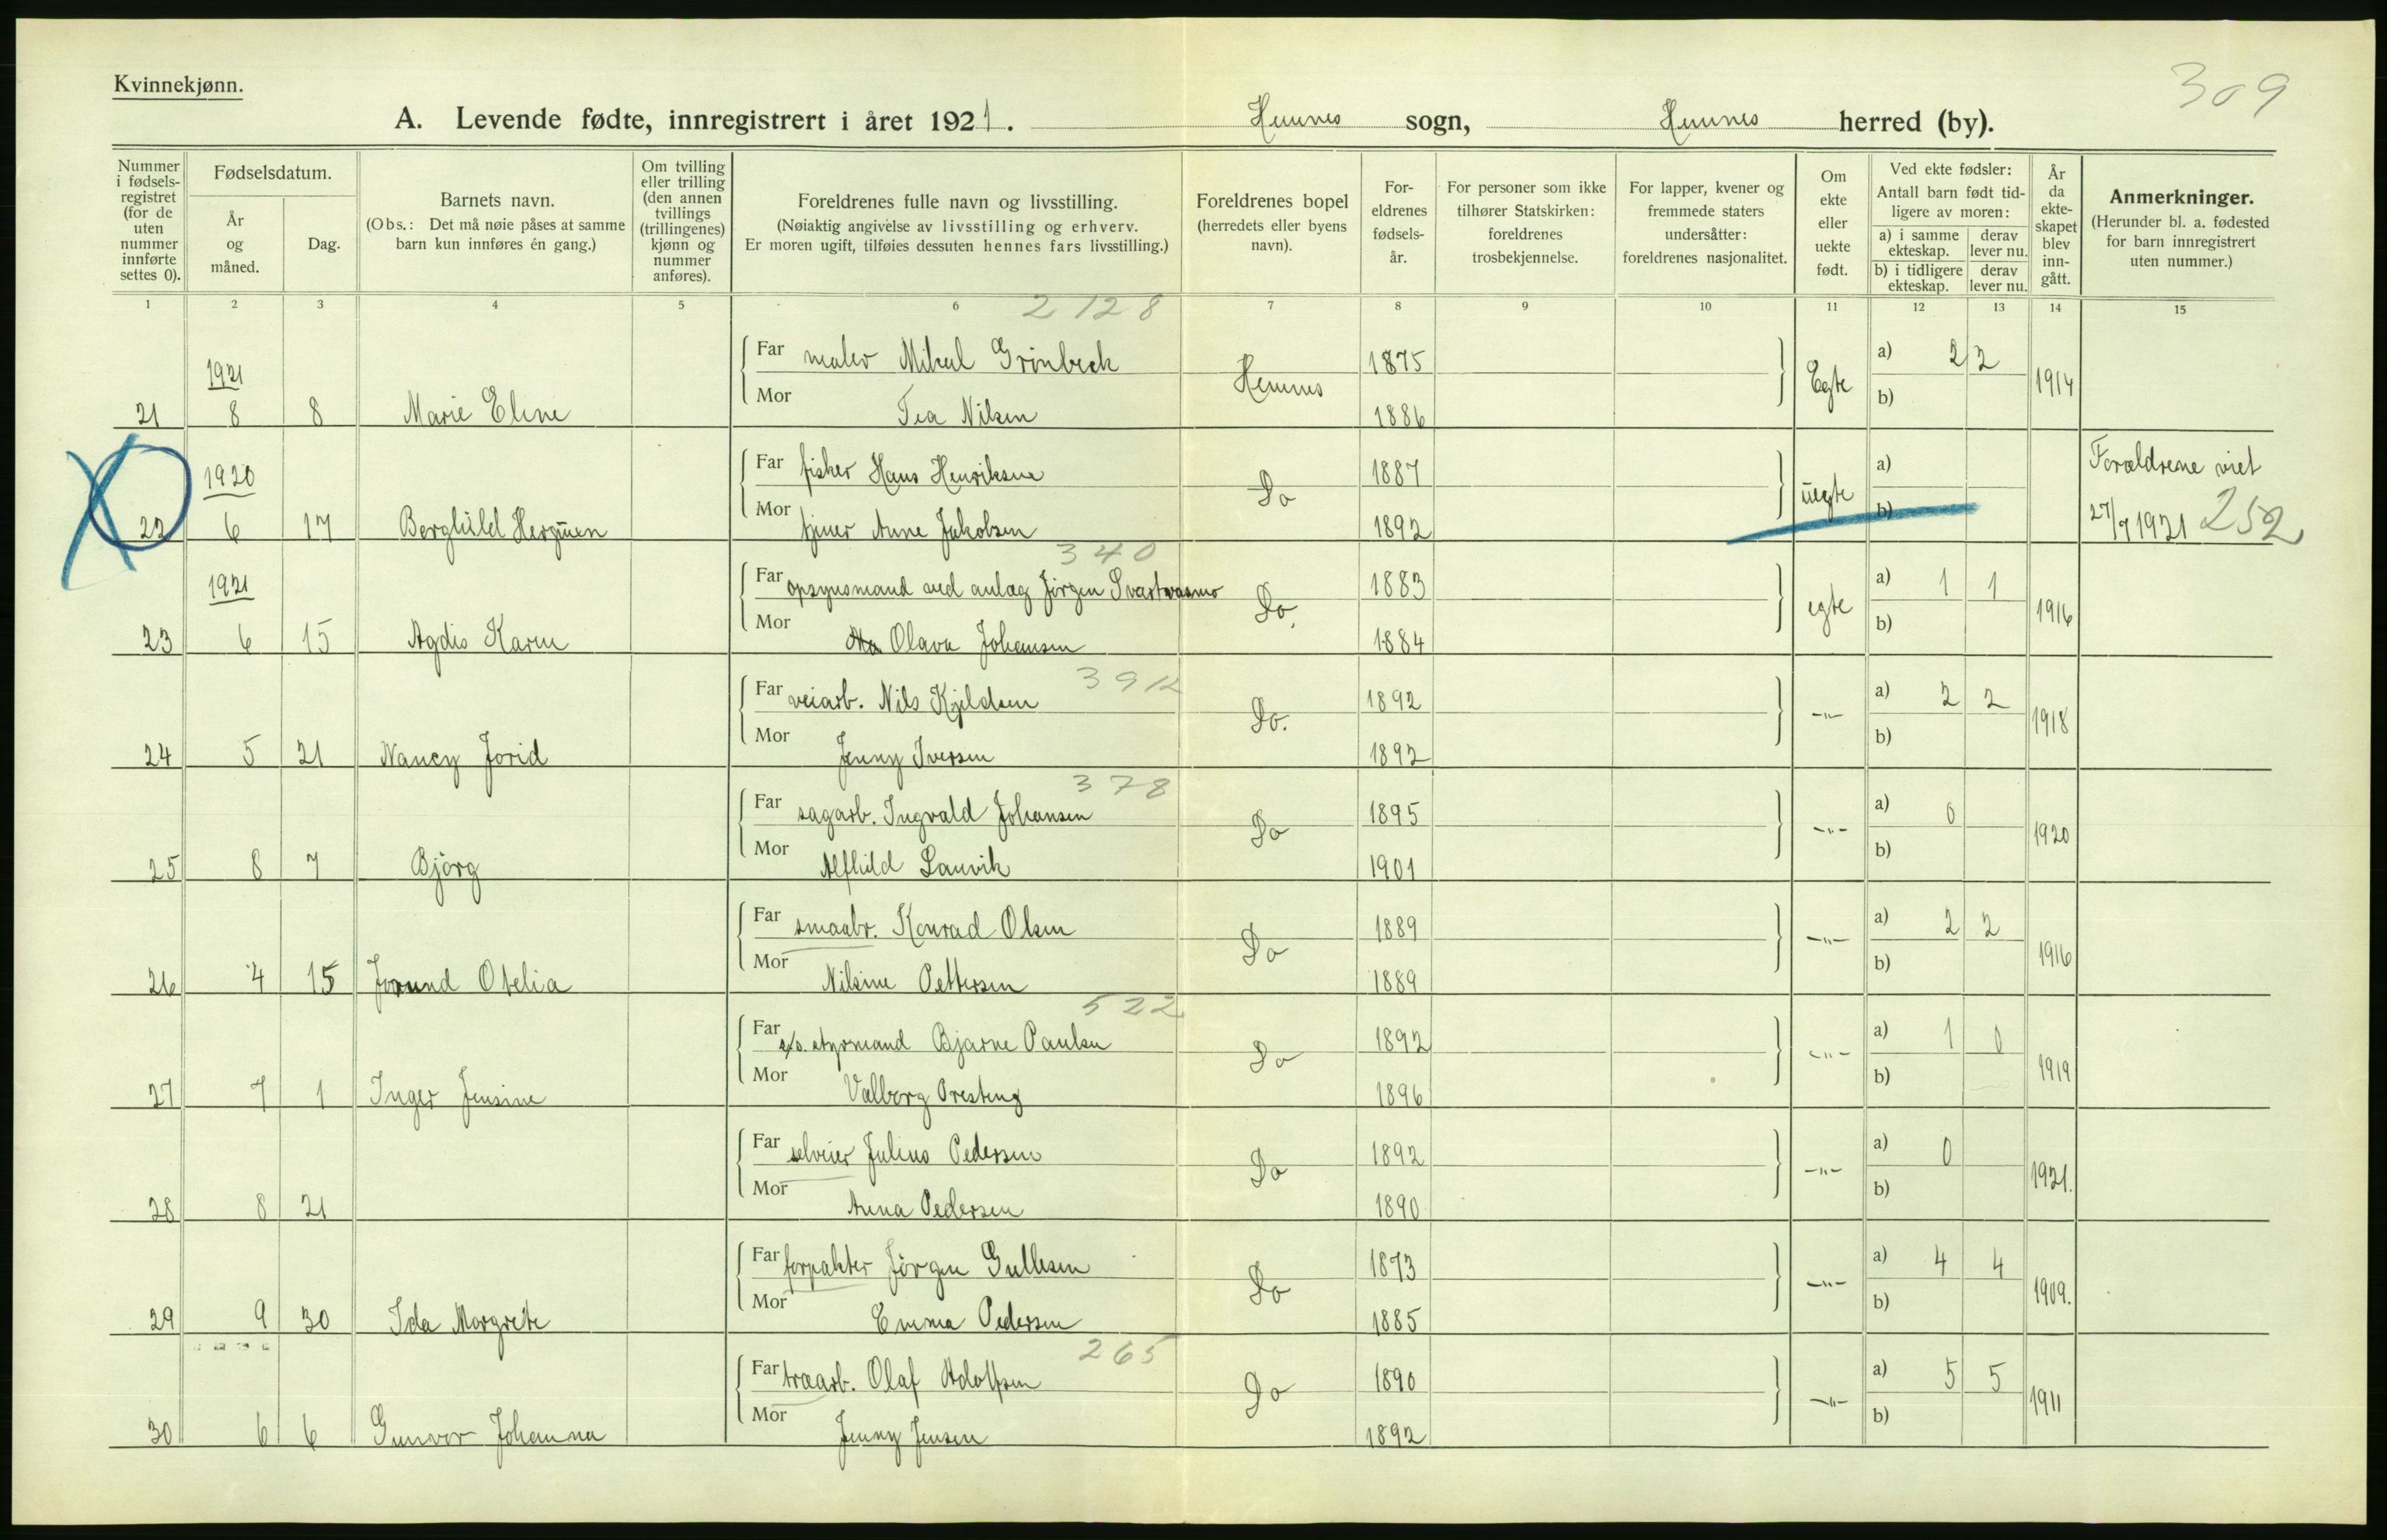 Kvinnekjønn.
309
A. Levende fødte, innregistrert i året 1921. Hemnes sogn, Hemnes herred (by).
Nummer i fødselsregistret (for de uten nummer innførte settes 0).
Fødselsdatum.
År og måned.
Dag.
Barnets navn.
(Obs.: Det må nøie påses at samme barn kun innføres én gang.)
Om tvilling eller trilling (den annen tvillings (trillingenes) kjønn og nummer anføres).
Foreldrenes fulle navn og livsstilling.
(Nøiaktig angivelse av livsstilling og erhverv.
Er moren ugift, tilføies dessuten hennes fars livsstilling.)
Foreldrenes bopel
(herredets eller byens navn).
For-eldrenes fødsels-år.
For personer som ikke tilhører Statskirken: foreldrenes trosbekjennelse.
For lapper, kvener og fremmede staters undersåtter: foreldrenes nasjonalitet.
Om ekte eller uekte født.
Ved ekte fødsler:
Antall barn født tidligere av moren:
a) i samme ekteskap. derav lever nu.
b) i tidligere ekteskap. derav lever nu.
År da ekte-skapet blev inn-gått.
Anmerkninger.
(Herunder bl. a. fødested for barn innregistrert uten nummer.)
1 2 3 4 5 6 7 8 9 10 11 12 13 14 15
2128
1921
Far maler Mikal Grönbeck 1875 a) 2 2
Hemnes Egte 1914
21 8 8 Marie Eline Mor Tea Nilsen 1886 b)
1920
Far fisker Hans Henriksen 1887 a)
Do uegte Forældrene viet
22 6 17 Berghild Mor tjener Anne Jakobsen 1892 b) 27/7 1921 252
340
1921
Far opsynsmand ved anlæg Jörgen Svartvasmo 1883 a) 1 1
Do. egte 1916
23 6 15 Agdis Karin Mor Olava Johansen 1884 b)
Far veiarb. Nils Kjeldsen 1892 a) 2 2
Do. -"- 1918
24 5 21 Nancy Jorid Mor Jenny Iversen 1892 b)
378
Far sagarb. Ingvald Johansen 1895 a) 0
Do -"- 1920
25 8 7 Björg Mor Alfhild Lauvik 1901 b)
Far smaabr. Konrad Olsen 1889 a) 2 2
Do -"- 1916
26 4 15 Jorund Otelia Mor Nilsine Pettersen 1889 b)
522
Far styrmand Bjarne Paulsen 1892 a) 1 0
Do -"- 1919
27 7 1 Inger Jensine Mor Valborg Presteng 1896 b)
Far selveier Julius Pedersen 1892 a) 0
Do -"- 1921.
28 8 21 Mor Anna Pedersen 1890 b)
Far forpakter Jörgen Gullesen 1873 a) 4 4
Do -"- 1909.
29 9 30 Ida Margrete Mor Emma Pedersen 1885 b)
265
Far træarb. Olaf Adolfsen 1890 a) 5 5
Do -"- 1911
30 6 6 Gunvor Johanna Mor Jenny Jensen 1892 b)